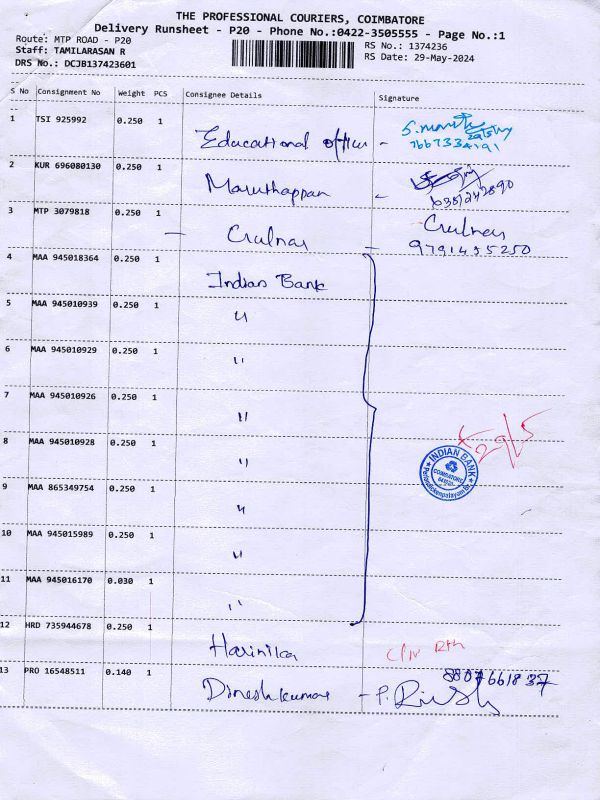 THE PROFESSIONAL COURIERS, COIMBATORE
Delivery Runsheet - P20 - Phone No.:0422-3505555 - Page No.:1
Route: MTP ROAD - P20
RS No.: 1374236
Staff: TAMILARASAN R
RS Date: 29-May-2024
DRS No.: DCJB137423601
S No Consignment No Weight PCS Consignee Details Signature
1 TSI 925992 0.250 1 Educational officer -
7667334191
2 KUR 696080130 0.250 1 Maruthappan -
6381242890
3 MTP 3079818 0.250 1 - Crulnar - Crulnar
9791495250
4 MAA 945018364 0.250 1 Indian Bank
5 MAA 945010939 0.250 1 "
6 MAA 945010929 0.250 1 "
7 MAA 945010926 0.250 1 "
8 MAA 945010928 0.250 1 "
29/5
INDIAN BANK
COIMBATORE
9 MAA 865349754 0.250 1 "
10 MAA 945015989 0.250 1 "
11 MAA 945016170 0.030 1 "
12 HRD 735944678 0.250 1 Harinika
13 PRO 16548511 0.140 1 Dineshkumar -
8807661837